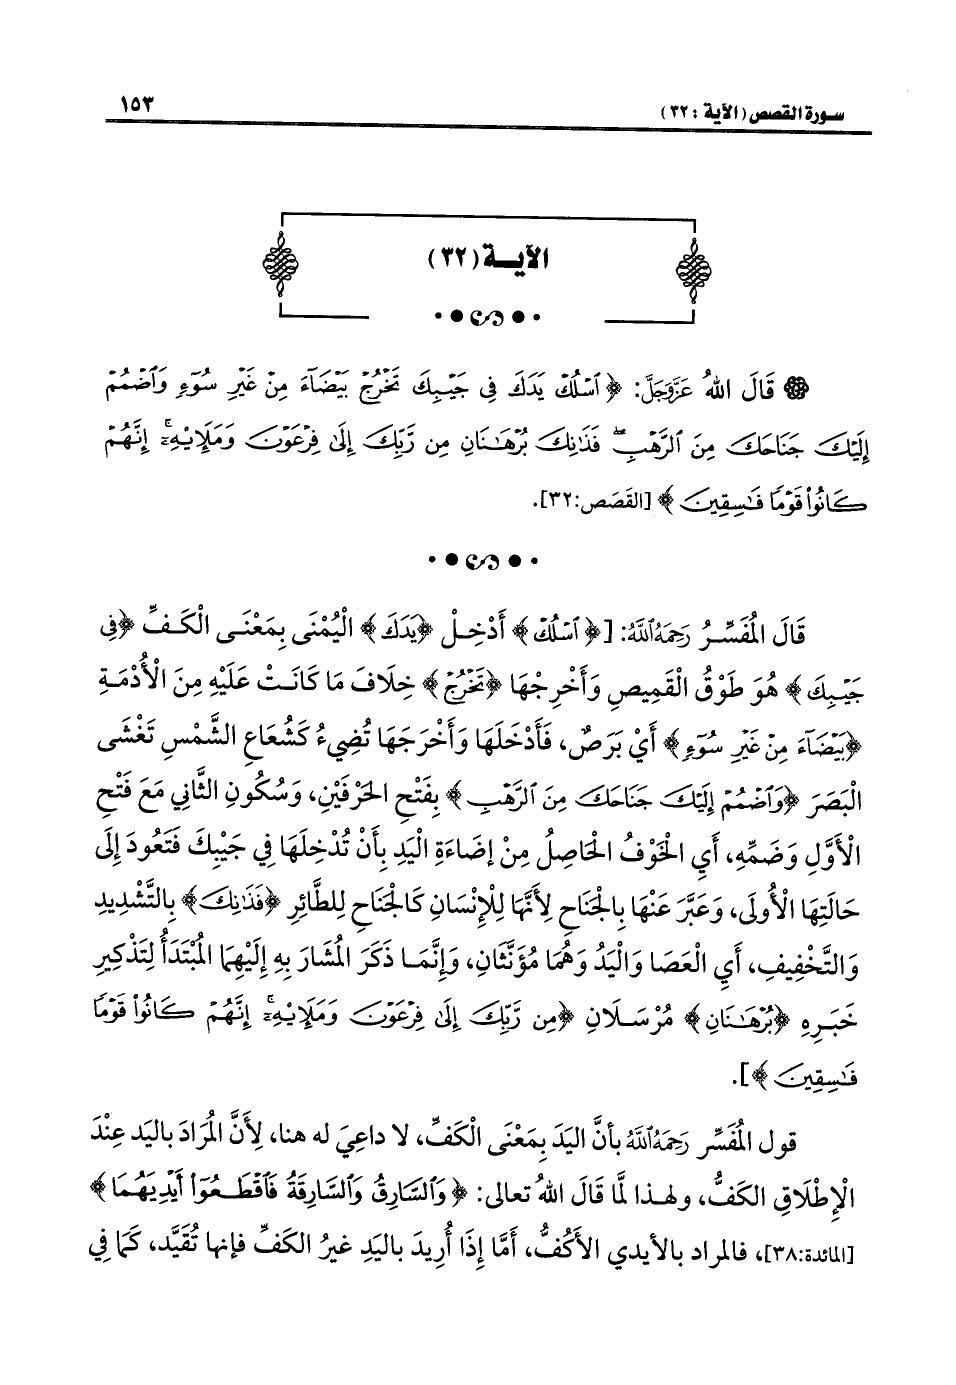 سورة القصص (الآية : ٣٢)
١٥٣
الآيــة (٣٢)
قَالَ اللهُ عَزَّوَجَلَّ: ﴿ ٱسْلُكْ يَدَكَ فِى جَيْبِكَ تَخْرُجْ بَيْضَآءَ مِنْ غَيْرِ سُوٓءٍ وَٱضْمُمْ
إِلَيْكَ جَنَاحَكَ مِنَ ٱلرَّهْبِ ۖ فَذَٰنِكَ بُرْهَـٰنَانِ مِن رَّبِّكَ إِلَىٰ فِرْعَوْنَ وَمَلَإِيْهِۦٓ ۚ إِنَّهُمْ
كَانُوا۟ قَوْمًا فَـٰسِقِينَ ﴾ [القَصَص:٣٢].
قَالَ المُفَسِّرُ رَحِمَهُ اللَّهُ: [﴿ ٱسْلُكْ ﴾ أَدْخِلْ ﴿يَدَكَ﴾ الْيُمْنَى بِمَعْنَى الْكَفِّ ﴿فِى
جَيْبِكَ ﴾ هُوَ طَوْقُ الْقَمِيصِ وَأَخْرِجْهَا ﴿تَخْرُجْ ﴾ خِلَافَ مَا كَانَتْ عَلَيْهِ مِنَ الْأُدْمَةِ
﴿بَيْضَآءَ مِنْ غَيْرِ سُوٓءٍ﴾ أَيْ بَرَصٌ، فَأَدْخَلَهَا وَأَخْرَجَهَا تُضِيءُ كَشُعَاعِ الشَّمْسِ تَغْشَى
الْبَصَرَ ﴿وَٱضْمُمْ إِلَيْكَ جَنَاحَكَ مِنَ ٱلرَّهْبِ ﴾ بِفَتْحِ الْحَرْفَيْنِ، وَسُكُونِ الثَّانِي مَعَ فَتْحِ
الْأَوَّلِ وَضَمِّهِ، أَيِ الْخَوْفُ الْحَاصِلُ مِنْ إِضَاءَةِ الْيَدِ بِأَنْ تُدْخِلَهَا فِي جَيْبِكَ فَتَعُودَ إِلَى
حَالَتِهَا الْأُولَى، وَعَبَّرَ عَنْهَا بِالْجَنَاحِ لِأَنَّهَا لِلْإِنْسَانِ كَالْجَنَاحِ لِلطَّائِرِ ﴿فَذَٰنِكَ﴾ بِالتَّشْدِيدِ
وَالتَّخْفِيفِ، أَيِ الْعَصَا وَالْيَدُ وَهُمَا مُؤَنَّثَانِ، وَإِنَّمَا ذَكَرَ الْمُشَارَ بِهِ إِلَيْهِمَا الْمُبْتَدَأُ لِتَذْكِيرِ
خَبَرِهِ ﴿بُرْهَـٰنَانِ ﴾ مُرْسَلَانِ ﴿مِن رَّبِّكَ إِلَىٰ فِرْعَوْنَ وَمَلَإِيْهِۦٓ ۚ إِنَّهُمْ كَانُوا۟ قَوْمًا
فَـٰسِقِينَ ﴾].
قول المُفَسِّر رَحِمَهُ اللَّهُ بأنَّ اليَدَ بِمَعْنَى الْكَفِّ، لا داعِيَ له هنا، لِأَنَّ المُرَادَ باليَد عِنْدَ
الْإِطْلَاقِ الكَفُّ، ولهذا لَمَّا قَالَ اللهُ تعالى: ﴿ وَٱلسَّارِقُ وَٱلسَّارِقَةُ فَٱقْطَعُوٓا۟ أَيْدِيَهُمَا ﴾
[المائدة:٣٨]، فالمراد بالأيدي الأَكُفُّ، أَمَّا إِذَا أُرِيدَ باليَدِ غيرُ الكَفِّ فإنها تُقَيَّد، كَمَا فِي